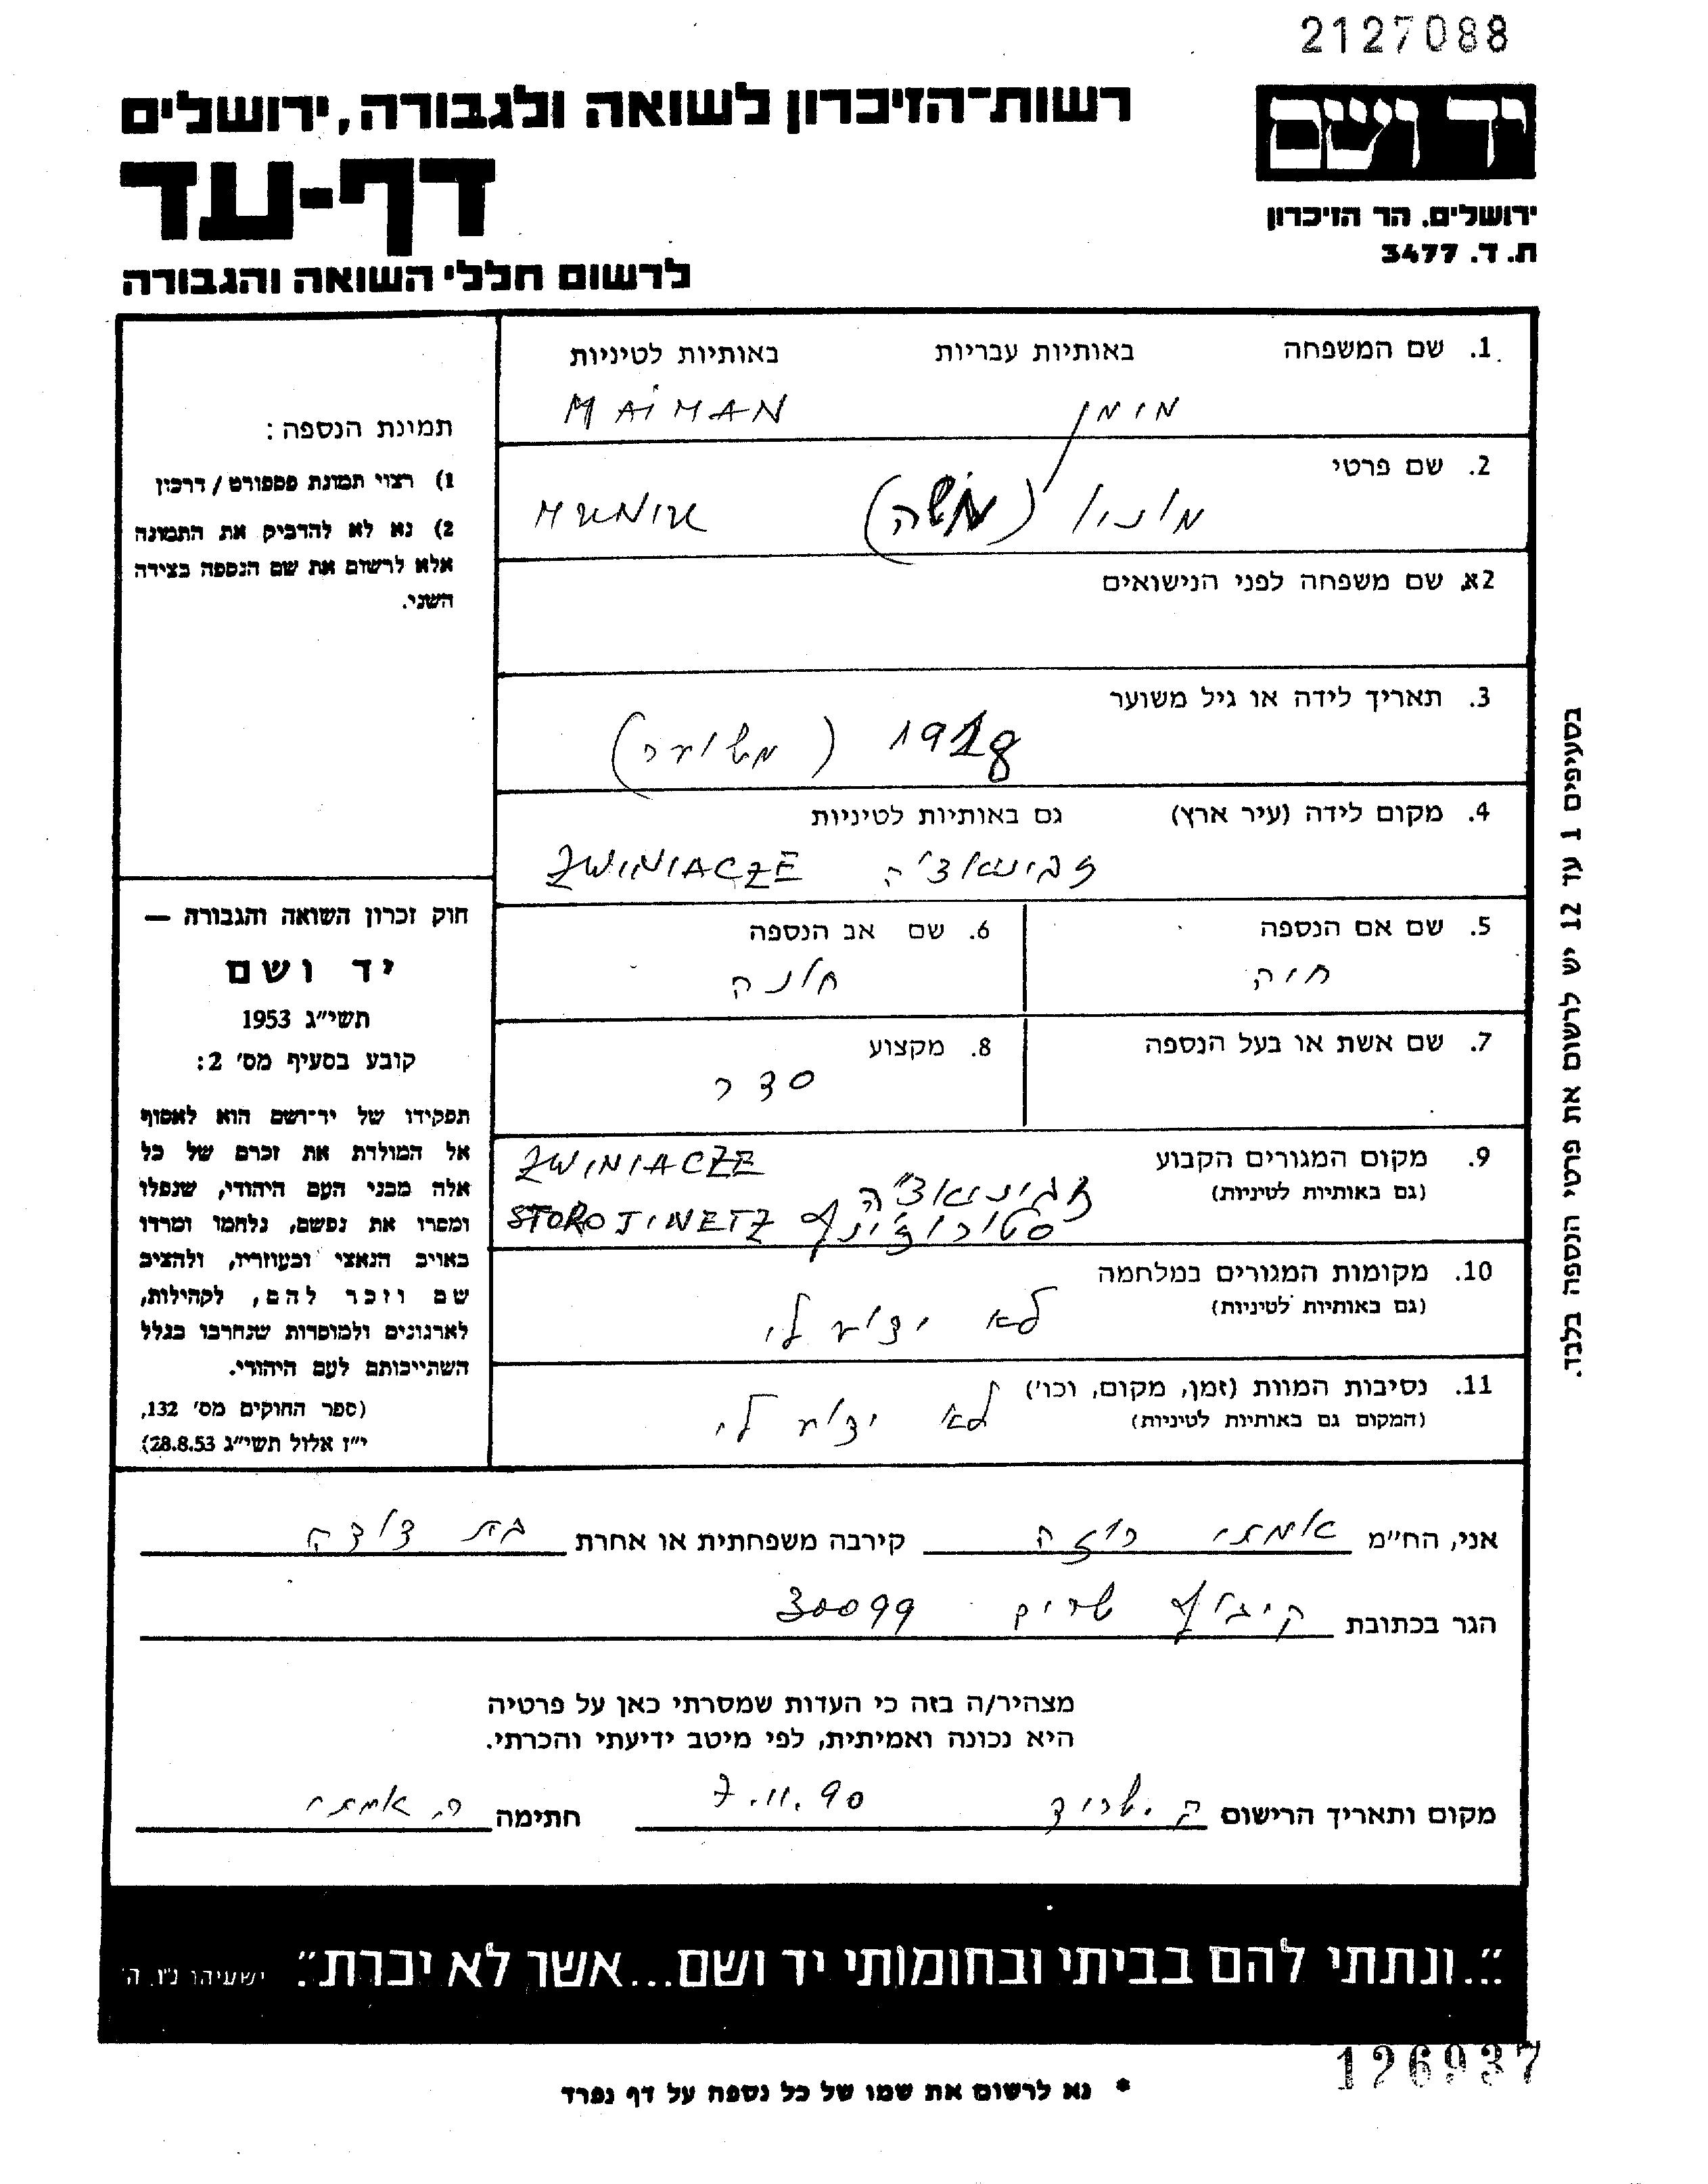 2127088
יד ושם
ירושלים. הר הזיכרון
ת. ד. 3477
רשות־הזיכרון לשואה ולגבורה, ירושלים
דף-עד
לרשום חללי השואה והגבורה
1. שם המשפחה באותיות עבריות באותיות לטיניות
מימן MAIMAN
2. שם פרטי
מוניו (משה)
2א. שם משפחה לפני הנישואים
3. תאריך לידה או גיל משוער
1918 (משוער)
4. מקום לידה (עיר ארץ) גם באותיות לטיניות
זביניאצ'ה ZWINIACZE
5. שם אם הנספה
חיה
6. שם אב הנספה
חונה
7. שם אשת או בעל הנספה
8. מקצוע
סדר
9. מקום המגורים הקבוע
(גם באותיות לטיניות)
זביניאצ'ה ZWINIACZE
סטורוז'ינץ STOROJINETZ
10. מקומות המגורים במלחמה
(גם באותיות לטיניות)
לא ידוע לי
11. נסיבות המוות (זמן, מקום, וכו')
(המקום גם באותיות לטיניות)
לא ידוע לי
תמונת הנספה:
1) רצוי תמונת פספורט / דרכון
2) נא לא להדביק את התמונה
אלא לרשום את שם הנספה בצידה
השני.
חוק זכרון השואה והגבורה —
יד ושם
תשי"ג 1953
קובע בסעיף מס' 2:
תפקידו של יד־ושם הוא לאסוף
אל המולדת את זכרם של כל
אלה מבני העם היהודי, שנפלו
ומסרו את נפשם, נלחמו ומרדו
באויב הנאצי ובעוזריו, ולהציב
שם וזכר להם, לקהילות,
לארגונים ולמוסדות שנחרבו בגלל
השתייכותם לעם היהודי.
(ספר החוקים מס' 132,
י"ז אלול תשי"ג 28.8.53)
בסעיפים 1 עד 12 יש לרשום את פרטי הנספה בלבד.
אני, הח"מ אמתי רוזה קירבה משפחתית או אחרת בת דודה
הגר בכתובת קיבוץ שריד 30099
מצהיר/ה בזה כי העדות שמסרתי כאן על פרטיה
היא נכונה ואמיתית, לפי מיטב ידיעתי והכרתי.
מקום ותאריך הרישום ק. שריד 7.11.90 חתימה ר. אמתי
"...ונתתי להם בביתי ובחומותי יד ושם...אשר לא יכרת". ישעיהו נ"ו, ה'
126937
* נא לרשום את שמו של כל נספה על דף נפרד